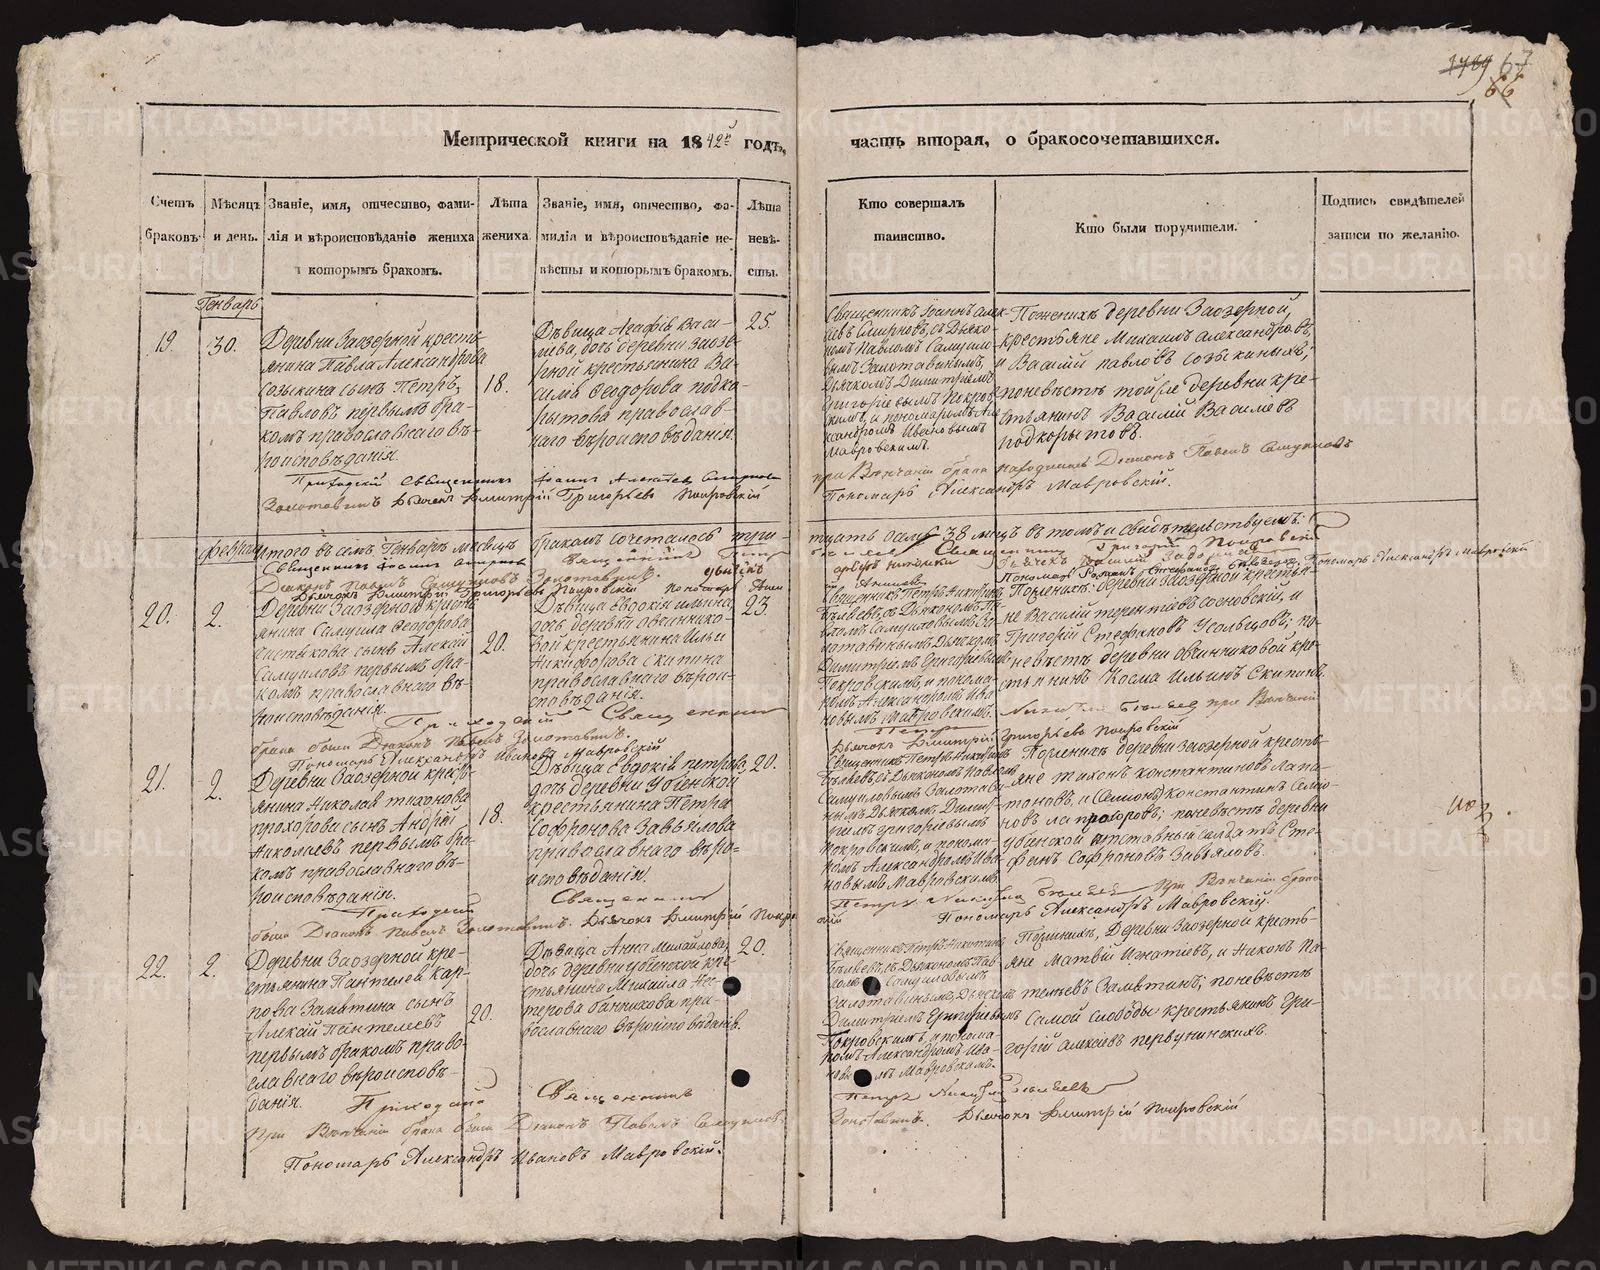 1789 67
66
Метрической книги на 1842й годъ,
часть вторая, о бракосочетавшихся.
Счетъ браковъ.
Мѣсяцъ и день.
Званіе, имя, отчество, фами-
лія и вѣроисповѣданіе жениха
и которымъ бракомъ.
Лѣта
жениха.
Званіе, имя, отчество, фа-
милія и вѣроисповѣданіе не-
вѣсты и которымъ бракомъ.
Лѣта
невѣ-
сты.
Кто совершалъ
таинство.
Кто были поручители.
Подпись свидѣтелей
записи по желанію.
Генварь
19.
30.
Деревни Заозерной кресть
янина Павла Александрова
Созыкина сынъ Петръ
Павловъ первымъ бра-
комъ православнаго вѣ-
роисповѣданія.
18.
Дѣвица Агафія Васи-
лева, дочь деревни Заозе-
рной крестьянина Ва-
силія Феодорова Подко-
рытова православ-
наго вѣроисповѣданія.
25.
Священникъ Іоаннъ Алек
ѣевъ Смирновъ, съ Дьяко-
номъ Павломъ Самуил-
вымъ Золотавинымъ,
Дьячкомъ Димитріемъ
Григорьевымъ Покров
скимъ, и пономаромъ Але
ксандромъ Ивановымъ
Мавровскимъ.
По женихѣ деревни Заозерной,
крестьяне Михаилъ Александровъ,
и Василій Павловъ Созыкины;
по невѣстѣ той же деревни кре-
стьянинъ Василій Васильевъ
Подкорытовъ.
Приходскій Священникъ Іоаннъ Алексѣевъ Смирновъ
при Вѣнчаніи брака находились Діаконъ Павелъ Самуиловъ
Золотавинъ Дьячекъ Димитрій Григорьевъ Покровскій
Пономарь Александръ Мавровскій.
Итого въ семъ Генварѣ мѣсяцѣ бракомъ сочеталось три-
тцать осмь 38 лицъ въ томъ и свидѣтельствуемъ:
Февраль
Священникъ Іоаннъ Смирновъ
Священникъ Петр
Діаконъ Павелъ Самуиловъ Золотавинъ.
Дьячокъ Димитрій Григорьевъ Покровскій
Пономарь Александръ Мавровскій
20.
2.
Деревни Заозерной кресть
янина Самуила Феодорова
Чистякова сынъ Алексѣй
Самуиловъ первымъ бра-
комъ православнаго вѣ-
роисповѣданія.
20.
Дѣвица Евдокія Ильина,
дочь деревни Овчиннико-
вой крестьянина Ильи
Никифорова Скипина
православнаго вѣрои-
сповѣданія.
23.
Священникъ Петръ Никитинъ
Бѣляевъ, съ Дьякономъ Па
вломъ Самуиловымъ Зо-
лотавинымъ Дьячкомъ
Димитріемъ Григорьевымъ
Покровскимъ, и понома-
ромъ Александромъ Ива
новымъ Мавровскимъ.
По женихѣ: деревни Заозерной крестья
не Василій Терентіевъ Сосновскій, и
Григорій Стефановъ Усольцовъ; по
невѣстѣ деревни Овчинниковой кре-
стьянинъ Косма Ильинъ Скипинъ.
Приходскій Священникъ
Петръ Никитинъ Бѣляевъ при Вѣнчаніи
брака были Діаконъ Павелъ Золотавинъ.
Дьячокъ Димитрій Григорьевъ Покровскій
Пономарь Александръ Ивановъ Мавровскій
21.
2.
Деревни Заозерной кресть
янина Николая Тихонова
Прохорова сынъ Андрей
Николаевъ первымъ бра-
комъ православнаго вѣ-
роисповѣданія.
18.
Дѣвица Евдокія Петрова,
дочь деревни Убіенской
крестьянина Петра
Софронова Завьялова
православнаго вѣро-
исповѣданія.
20.
Священникъ Петръ Никитинъ
Бѣляевъ, съ Дьякономъ Павломъ
Самуиловымъ Золотави-
нымъ Дьячкомъ Димит-
ріемъ Григорьевымъ
Покровскимъ, и понома-
ромъ Александромъ Ива-
новымъ Мавровскимъ
По женихѣ деревни Заозерной кресть-
яне Тихонъ Константиновъ
и Константинъ
по невѣстѣ деревни
Убіенской отставный солдатъ Сте-
фанъ Софроновъ Завьяловъ.
Приходскій Священникъ
Петръ Никитинъ Бѣляевъ При Вѣнчаніи брака
были Діаконъ Павелъ Золотавинъ. Дьячокъ Димитрій Покров
скій Пономарь Александръ Мавровскій.
22.
2.
Деревни Заозерной кре-
стьянина Пантелея Кар-
пова Замятина сынъ
Алексѣй Пантелеевъ
первымъ бракомъ право-
славнаго вѣроисповѣ-
данія.
20.
Дѣвица Анна Михайлова,
дочь деревни Убіенской кре-
стьянина Михаила Не-
стерова Банникова пра-
вославнаго вѣроисповѣданія.
20.
Священникъ Петръ Никитинъ
Бѣляевъ, съ Дьякономъ Пав-
ломъ Самуиловымъ
Золотавинымъ, Дьячкомъ
Димитріемъ Григорьевымъ
Покровскимъ, и понома
ромъ Александромъ Ива-
новымъ Мавровскимъ.
По женихѣ, Деревни Заозерной кресть-
яне Матвій Игнатіевъ, и Никонъ Па-
телеевъ Замятинъ; по невѣстѣ
Самой слободы крестьянинъ Гри-
горій Алексѣевъ Первунинскихъ.
Приходскій Священникъ
Петръ Никитинъ Бѣляевъ
При Вѣнчаніи брака были Діаконъ Павелъ Самуиловъ
Золотавинъ. Дьячокъ Димитрій Покровскій
Пономарь Александръ Ивановъ Мавровскій.
METRIKI.GASO-URAL.RU